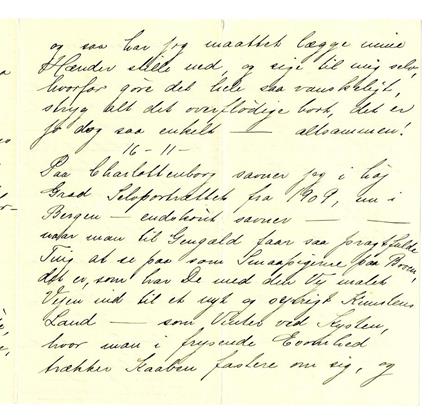 og saa har jeg maattet lægge mine
Hænder stille ned, og sige til mig selv,
hvorfor gøre det hele saa vanskeligt,
stryg alt det overflødige bort, det er
jo dog saa enkelt — altsammen!
16-11-
Paa Charlottenborg savner jeg i høj
Grad Selvportrættet fra 1909, nu i
Bergen — endskønt savner — —
naar man til Gengald faar saa pragtfulde
Ting at se paa som Smaapigerne paa
det er, som har De med den Vej malet
Vejen ind til et nyt og Kunstens
Land — som Vinter ved Kysten,
hvor man i frysende Ensomhed
trækker Kaaben fastere om sig, og